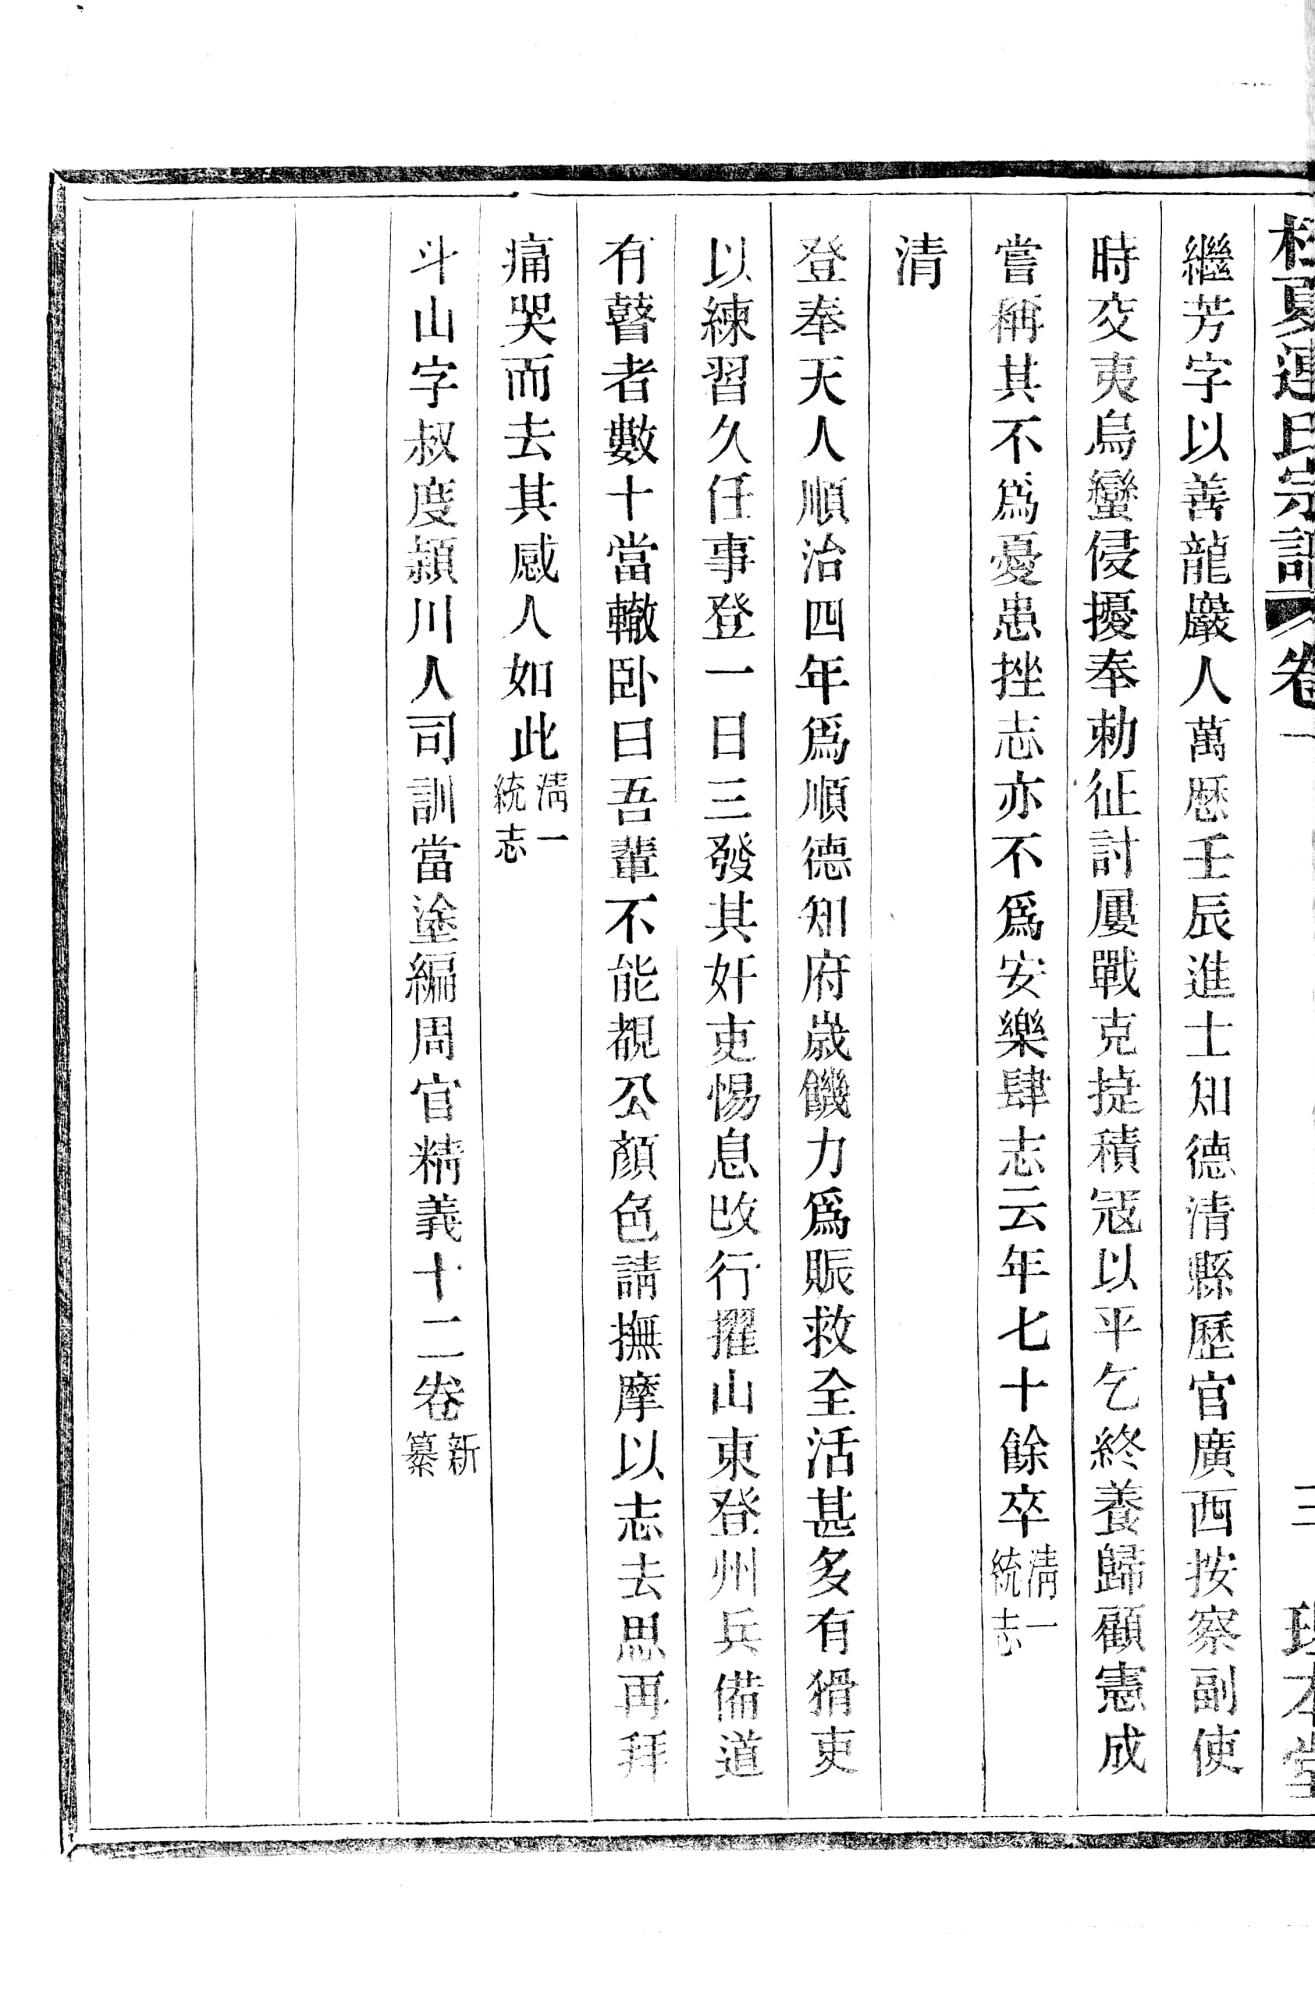 連氏宗譜 卷一 三
繼芳字以善龍巖人萬厯壬辰進士知德清縣歷官廣西按察副使
時交夷烏蠻侵擾奉勅征討屢戰克捷積寇以平乞終養歸顧憲成
嘗稱其不爲憂患挫志亦不爲安樂肆志云年七十餘卒清一統志
清
登奉天人順治四年爲順德知府歲饑力爲賑救全活甚多有猾吏
以練習久任事登一日三發其奸吏惕息改行擢山東登州兵備道
有瞽者數十當轍卧曰吾輩不能覩公顏色請撫摩以志去思再拜
痛哭而去其感人如此清一統志
斗山字叔度潁川人司訓當塗編周官精義十二卷新纂